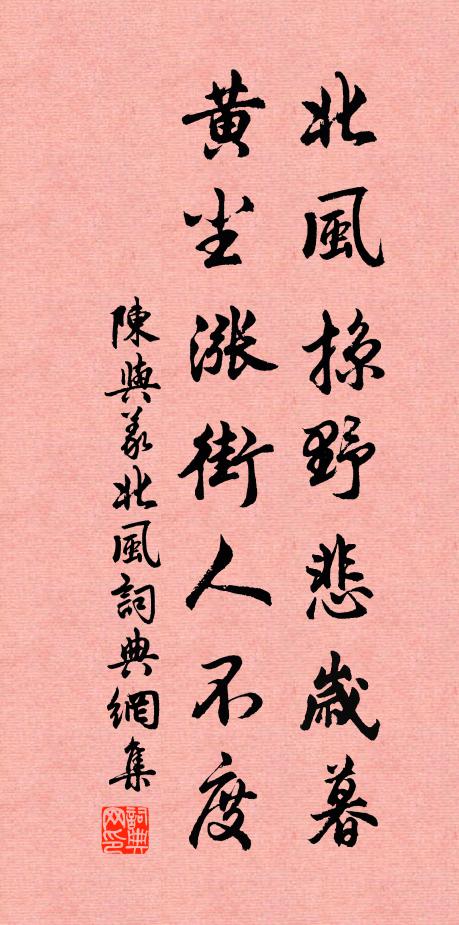 北風掠野悲歲暮
黃尘漲街人不度
陳與義北風詞典網集
詞典網印